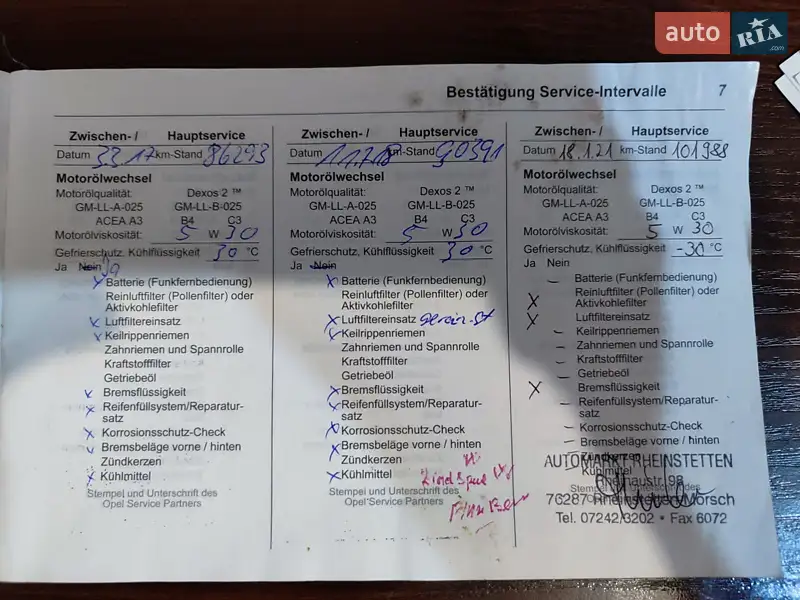 auto RIA .com
Bestätigung Service-Intervalle 7
Zwischen- / Hauptservice
Datum 33.17 km-Stand 86293
Motorölwechsel
Motorölqualität: Dexos 2 ™
GM-LL-A-025 GM-LL-B-025
ACEA A3 B4 C3
Motorölviskosität: 5 W 30
Gefrierschutz, Kühlflüssigkeit 30 °C
Ja Nein Ja
x Batterie (Funkfernbedienung)
Reinluftfilter (Pollenfilter) oder
Aktivkohlefilter
x Luftfiltereinsatz
x Keilrippenriemen
Zahnriemen und Spannrolle
Kraftstofffilter
Getriebeöl
x Bremsflüssigkeit
x Reifenfüllsystem/Reparatur-
satz
x Korrosionsschutz-Check
x Bremsbeläge vorne / hinten
Zündkerzen
x Kühlmittel
Stempel und Unterschrift des
Opel Service Partners
Zwischen- / Hauptservice
Datum 11.7.18 km-Stand 90391
Motorölwechsel
Motorölqualität: Dexos 2 ™
GM-LL-A-025 GM-LL-B-025
ACEA A3 B4 C3
Motorölviskosität: 5 W 30
Gefrierschutz, Kühlflüssigkeit 30 °C
Ja Nein
x Batterie (Funkfernbedienung)
Reinluftfilter (Pollenfilter) oder
Aktivkohlefilter
x Luftfiltereinsatz
x Keilrippenriemen
Zahnriemen und Spannrolle
Kraftstofffilter
Getriebeöl
x Bremsflüssigkeit
x Reifenfüllsystem/Reparatur-
satz
x Korrosionsschutz-Check
x Bremsbeläge vorne / hinten
Zündkerzen
x Kühlmittel
Stempel und Unterschrift des
Opel Service Partners
Zwischen- / Hauptservice
Datum 18.1.21 km-Stand 101988
Motorölwechsel
Motorölqualität: Dexos 2 ™
GM-LL-A-025 GM-LL-B-025
ACEA A3 B4 C3
Motorölviskosität: 5 W 30
Gefrierschutz, Kühlflüssigkeit -30 °C
Ja Nein
– Batterie (Funkfernbedienung)
Reinluftfilter (Pollenfilter) oder
x Aktivkohlefilter
x Luftfiltereinsatz
– Keilrippenriemen
– Zahnriemen und Spannrolle
– Kraftstofffilter
– Getriebeöl
x Bremsflüssigkeit
– Reifenfüllsystem/Reparatur-
satz
– Korrosionsschutz-Check
– Bremsbeläge vorne / hinten
Zündkerzen
AUTOMARKT RHEINSTETTEN
Kühlmittel
Rheinaustr. 98
76287 Rheinstetten-Mörsch
Tel. 07242/3202 • Fax 6072